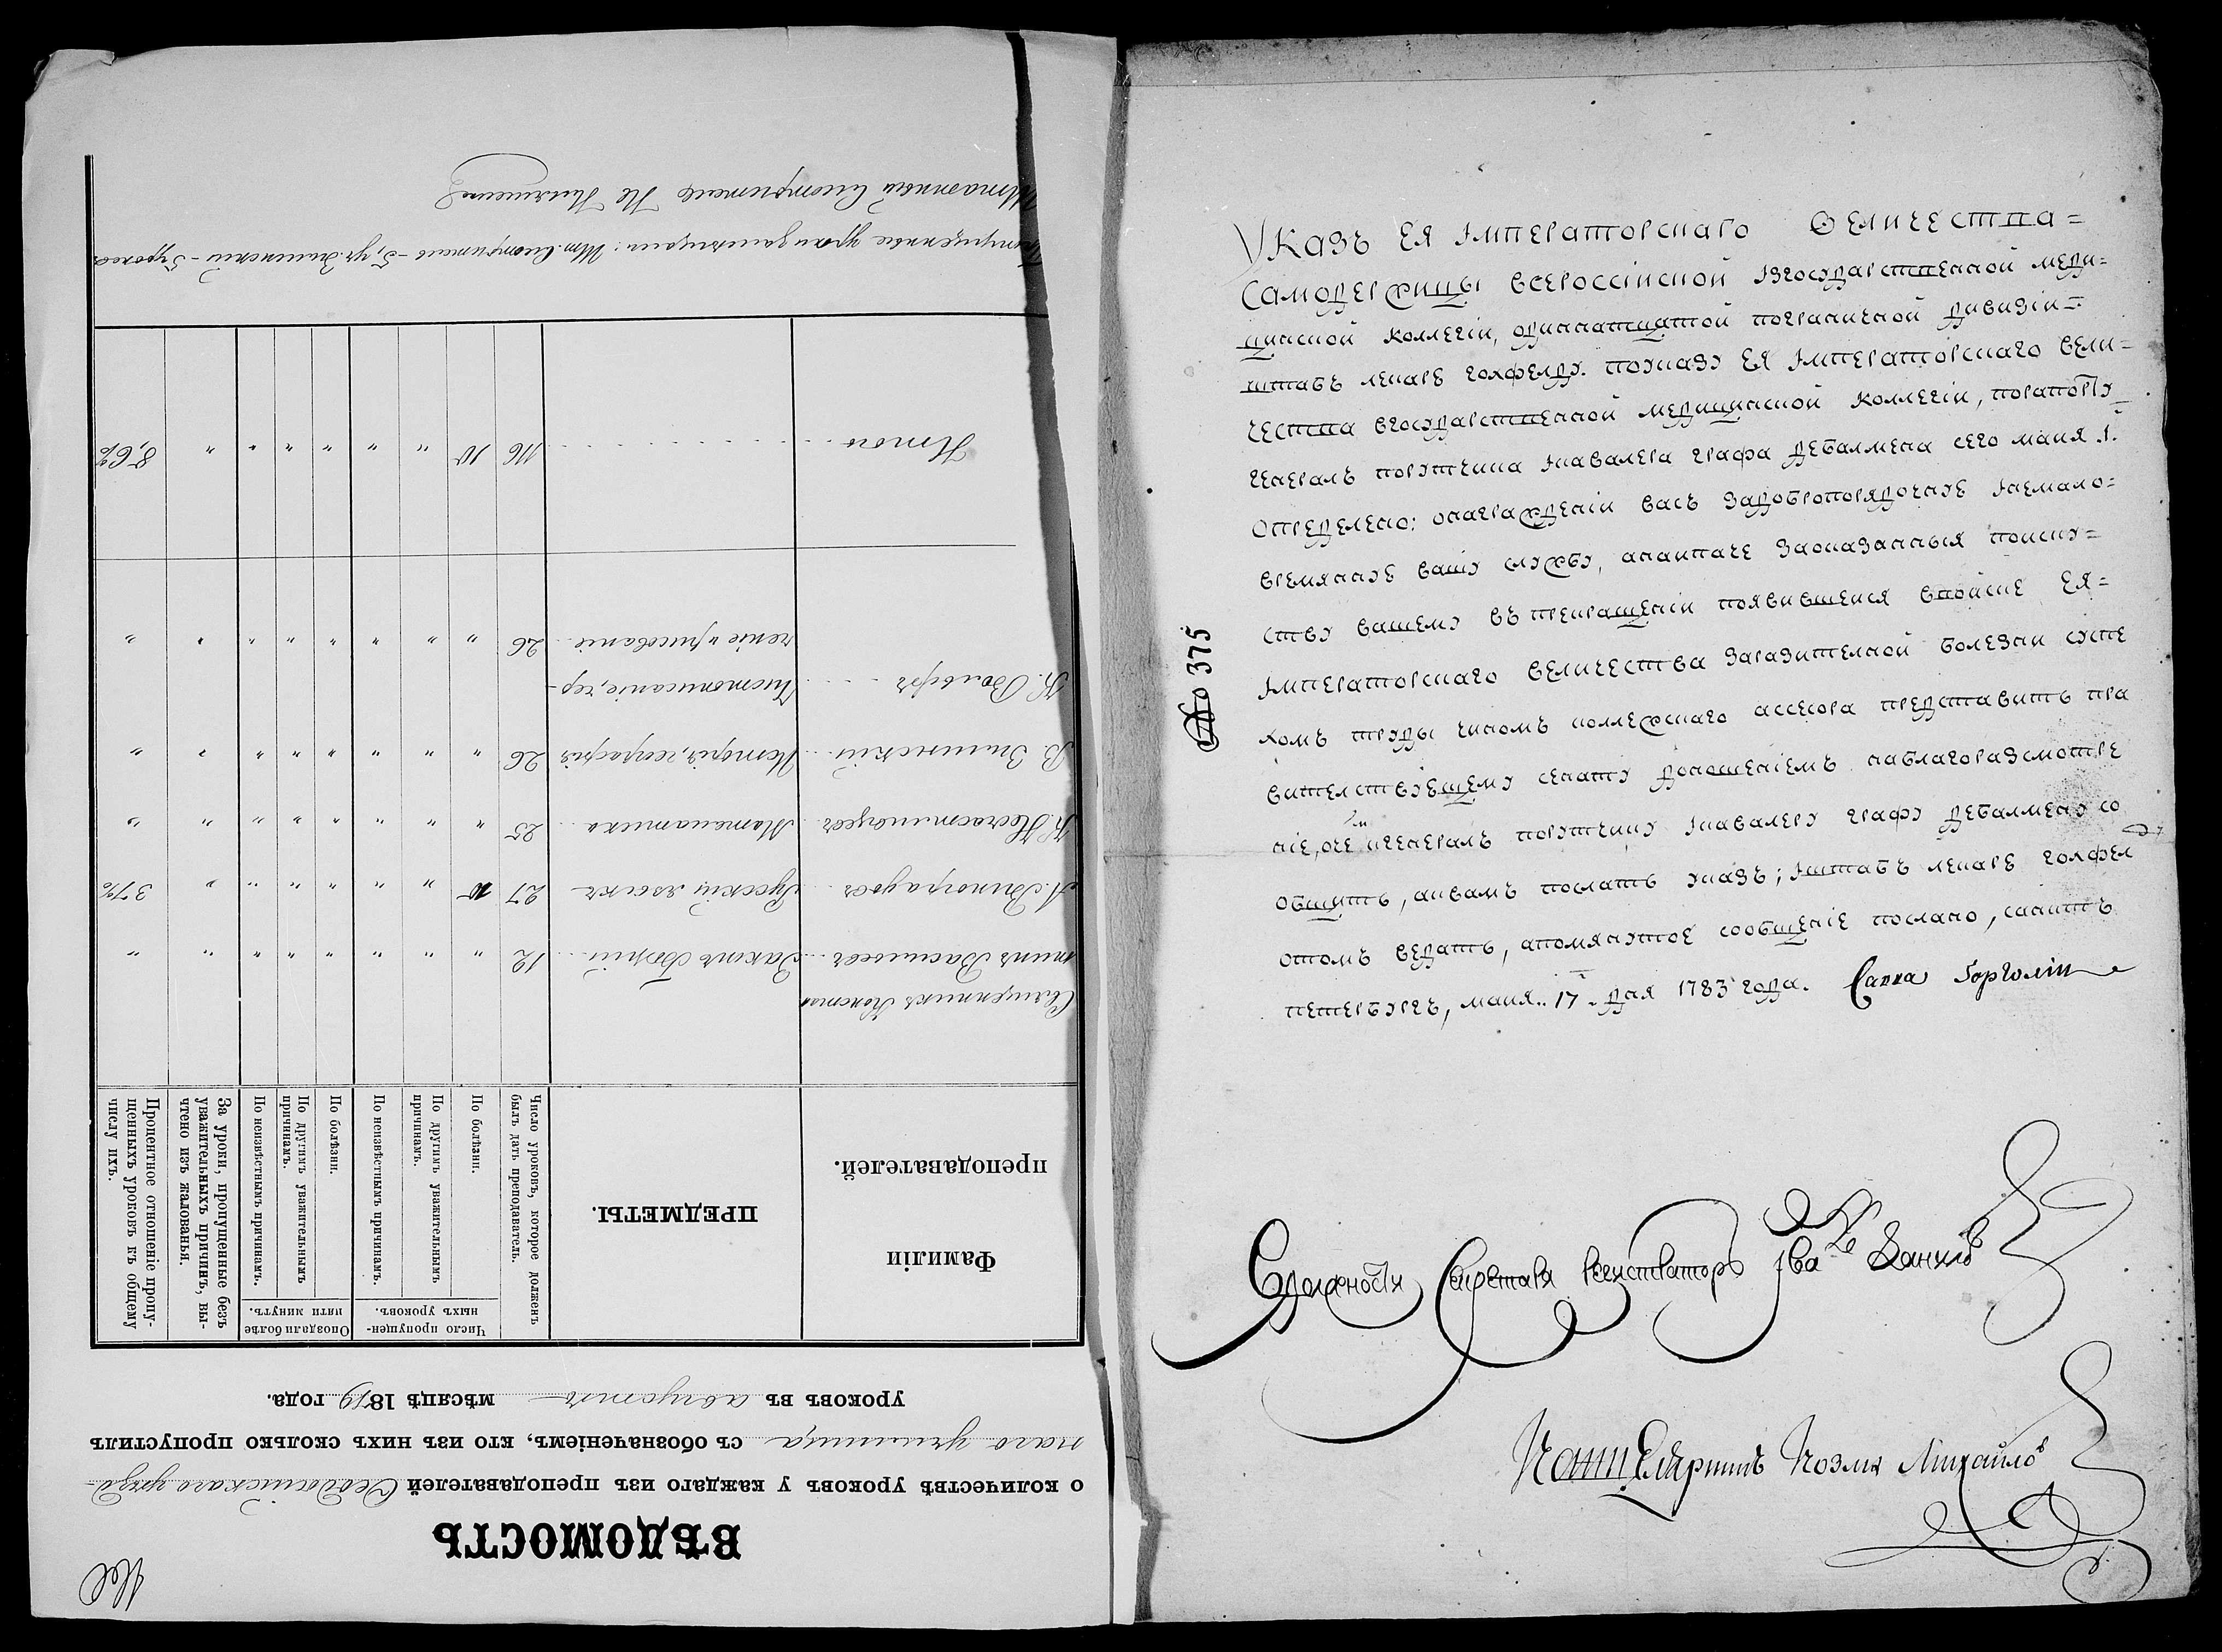 ВѢДОМОСТЬ
о количествѣ уроковъ у каждаго изъ преподавателей Себежскаго уѣзд-
наго училища съ обозначеніемъ, кто изъ нихъ сколько пропустилъ
уроковъ въ августѣ мѣсяцѣ 1879 года.
Фамиліи преподавателей.
ПРЕДМЕТЫ.
Число уроковъ, которое долженъ былъ дать преподаватель.
Число пропущен-ныхъ уроковъ.
По болѣзни.
По другимъ уважительнымъ причинамъ.
По неизвѣстнымъ причинамъ.
Опоздали болѣе пяти минутъ.
По болѣзни.
По другимъ уважительнымъ причинамъ.
По неизвѣстнымъ причинамъ.
За уроки, пропущенные безъ уважительныхъ причинъ, вы-чтено изъ жалованья.
Процентное отношеніе пропу-щенныхъ уроковъ къ общему числу ихъ.
Священникъ Констан
тинъ Васильевъ Законъ Божій 12 " " " " " " " "
А. Виноградовъ Русскій языкъ 27 10 " " " " " " 37%
К. Несчастливцевъ Математика 25 " " " " " " " "
В. Зилинскій Исторія, географія 26 " " " " " " " "
К. Вольфъ Чистописаніе, чер-
ченіе и рисованіе 26 " " " " " " " "
Итого 116 10 " " " " " " " 8,6%
Пропущенные уроки замѣщали: Шт. Смотритель - 5, уч. Зилинскій - 5 уроковъ
Штатный Смотритель
No 375
Указъ ея императорскаго величества=
самодержицы всероссійской изгосударственной меди=
цинской коллегіи, одиннатцатой пограничной дивизіи=
штабъ лекарю голфелду. поуказу ея императорскаго вели=
чества вгосударственной медицинской коллегіи, порапорту
генералъ порутчика икавалера графа дебалмена сего маия .1.
определено: онагражденіи васъ задобропорядочную инемало=
времянную вашу службу, анаипаче заоказанныя поиску=
ству вашему въ прекращеніи появившейся ввойске ея=
императорскаго величества заразителной болезни сугпе
комъ труды чиномъ коллежскаго ассесора представить пра
вителствующему сенату доношеніемъ наблагоразсмотре
ніе, очемъ игенералъ порутчику икавалеру графу дебалмену со
общить, аквамъ послать указъ; иштабъ лекарю голфелду
отомъ ведать, апомянутое сообщеніе послано, санитъ
петербургъ, маия..17. дня 1783 года. Савва Горголи
Вдолжности Секретаря регистраторъ Данилов
Канцеляристъ Козма Михайлов